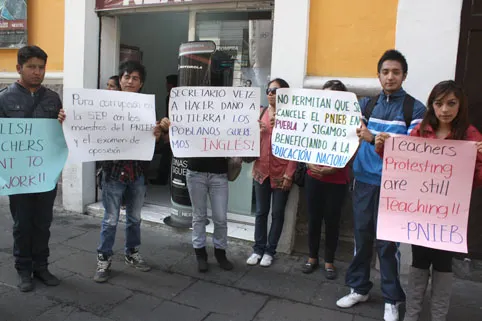 LISH
TEACHERS
NT TO
WORK!!
Para
la SEP en los
maestros del PNIEB
y el examen de
oposición
SECRETARIO VETE
A HACER DAÑO A
TU TIERRA! LOS
POBLANOS QUERE
MOS INGLES!
NO PERMITAN QUE SE
CANCELE EL PNIEB EN
PUEBLA Y SIGAMOS
BENEFICIANDO A LA
EDUCACIÓN NACIONAL
Teachers
Protesting
are still
Teaching!!
-PNIEB